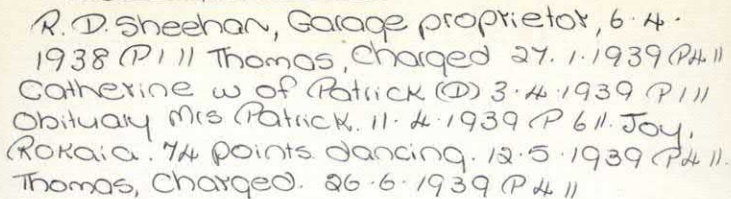 R.D. Sheehan, Garage proprietor, 6.4.
1938 (P1 // Thomas, Charged 27.1.1939 (P4 //
Catherine w of Patrick (D) 3.4.1939 (P1 //
Obituary Mrs Patrick. 11.4.1939 (P6 //. Joy,
Rokaia. 74 points dancing. 12.5.1939 (P4 //.
Thomas, Charged. 26.6.1939 (P4 //